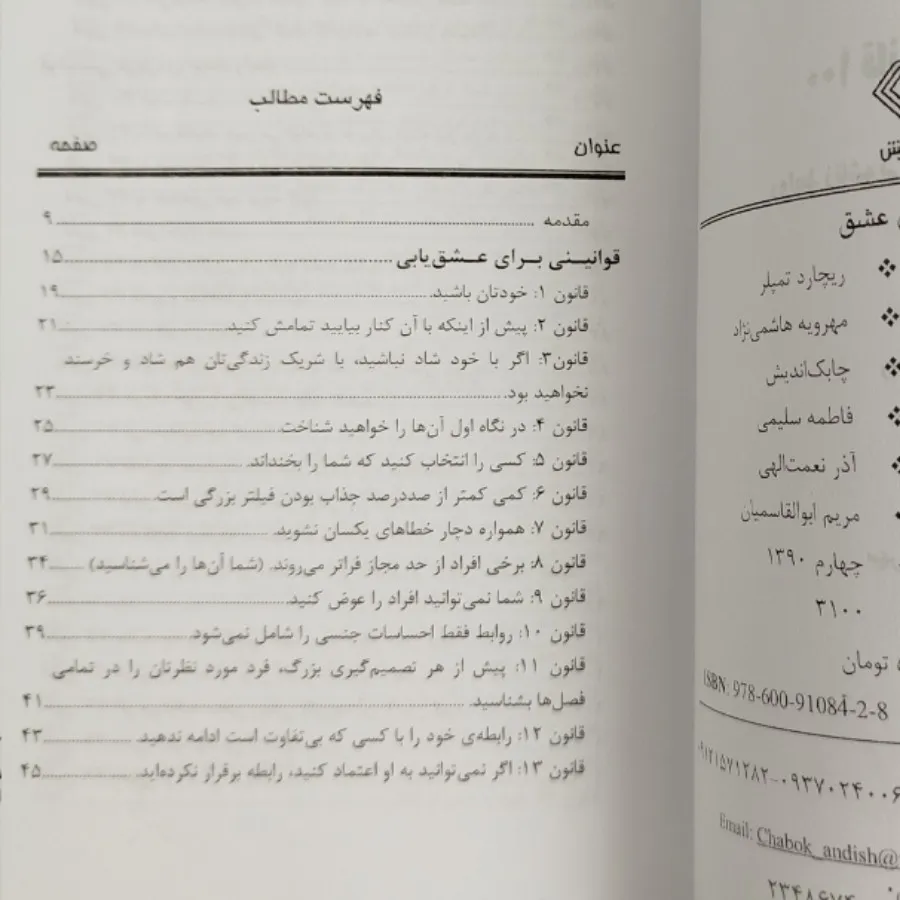 فهرست مطالب
عنوان صفحه
مقدمه ........ ۹
قوانینی برای عشق‌یابی ........ ۱۵
قانون ۱: خودتان باشید. ........ ۱۹
قانون ۲: پیش از اینکه با آن کنار بیایید تمامش کنید. ........ ۲۱
قانون۳: اگر با خود شاد نباشید، با شریک زندگی‌تان هم شاد و خرسند
نخواهید بود. ........ ۲۳
قانون ۴: در نگاه اول آن‌ها را خواهید شناخت. ........ ۲۵
قانون ۵: کسی را انتخاب کنید که شما را بخنداند. ........ ۲۷
قانون ۶: کمی کمتر از صددرصد جذاب بودن فیلتر بزرگی است. ........ ۲۹
قانون ۷: همواره دچار خطاهای یکسان نشوید. ........ ۳۱
قانون ۸: برخی افراد از حد مجاز فراتر می‌روند. (شما آن‌ها را می‌شناسید) ........ ۳۴
قانون ۹: شما نمی‌توانید افراد را عوض کنید. ........ ۳۶
قانون ۱۰: روابط فقط احساسات جنسی را شامل نمی‌شود. ........ ۳۹
قانون ۱۱: پیش از هر تصمیم‌گیری بزرگ، فرد مورد نظرتان را در تمامی
فصل‌ها بشناسید. ........ ۴۱
قانون ۱۲: رابطه‌ی خود را با کسی که بی‌تفاوت است ادامه ندهید. ........ ۴۳
قانون ۱۳: اگر نمی‌توانید به او اعتماد کنید، رابطه برقرار نکرده‌اید. ........ ۴۵
عشق
ریچارد تمپلر
مهرویه هاشمی‌نژاد
چابک‌اندیش
فاطمه سلیمی
آذر نعمت‌الهی
مریم ابوالقاسمیان
چهارم ۱۳۹۰
۳۱۰۰
تومان
ISBN: 978-600-91084-2-8
۰۹۱۲۱۵۷۱۲۸۲-۰۹۳۷۰۲۴۰۰۶
Email: Chabok_andish@